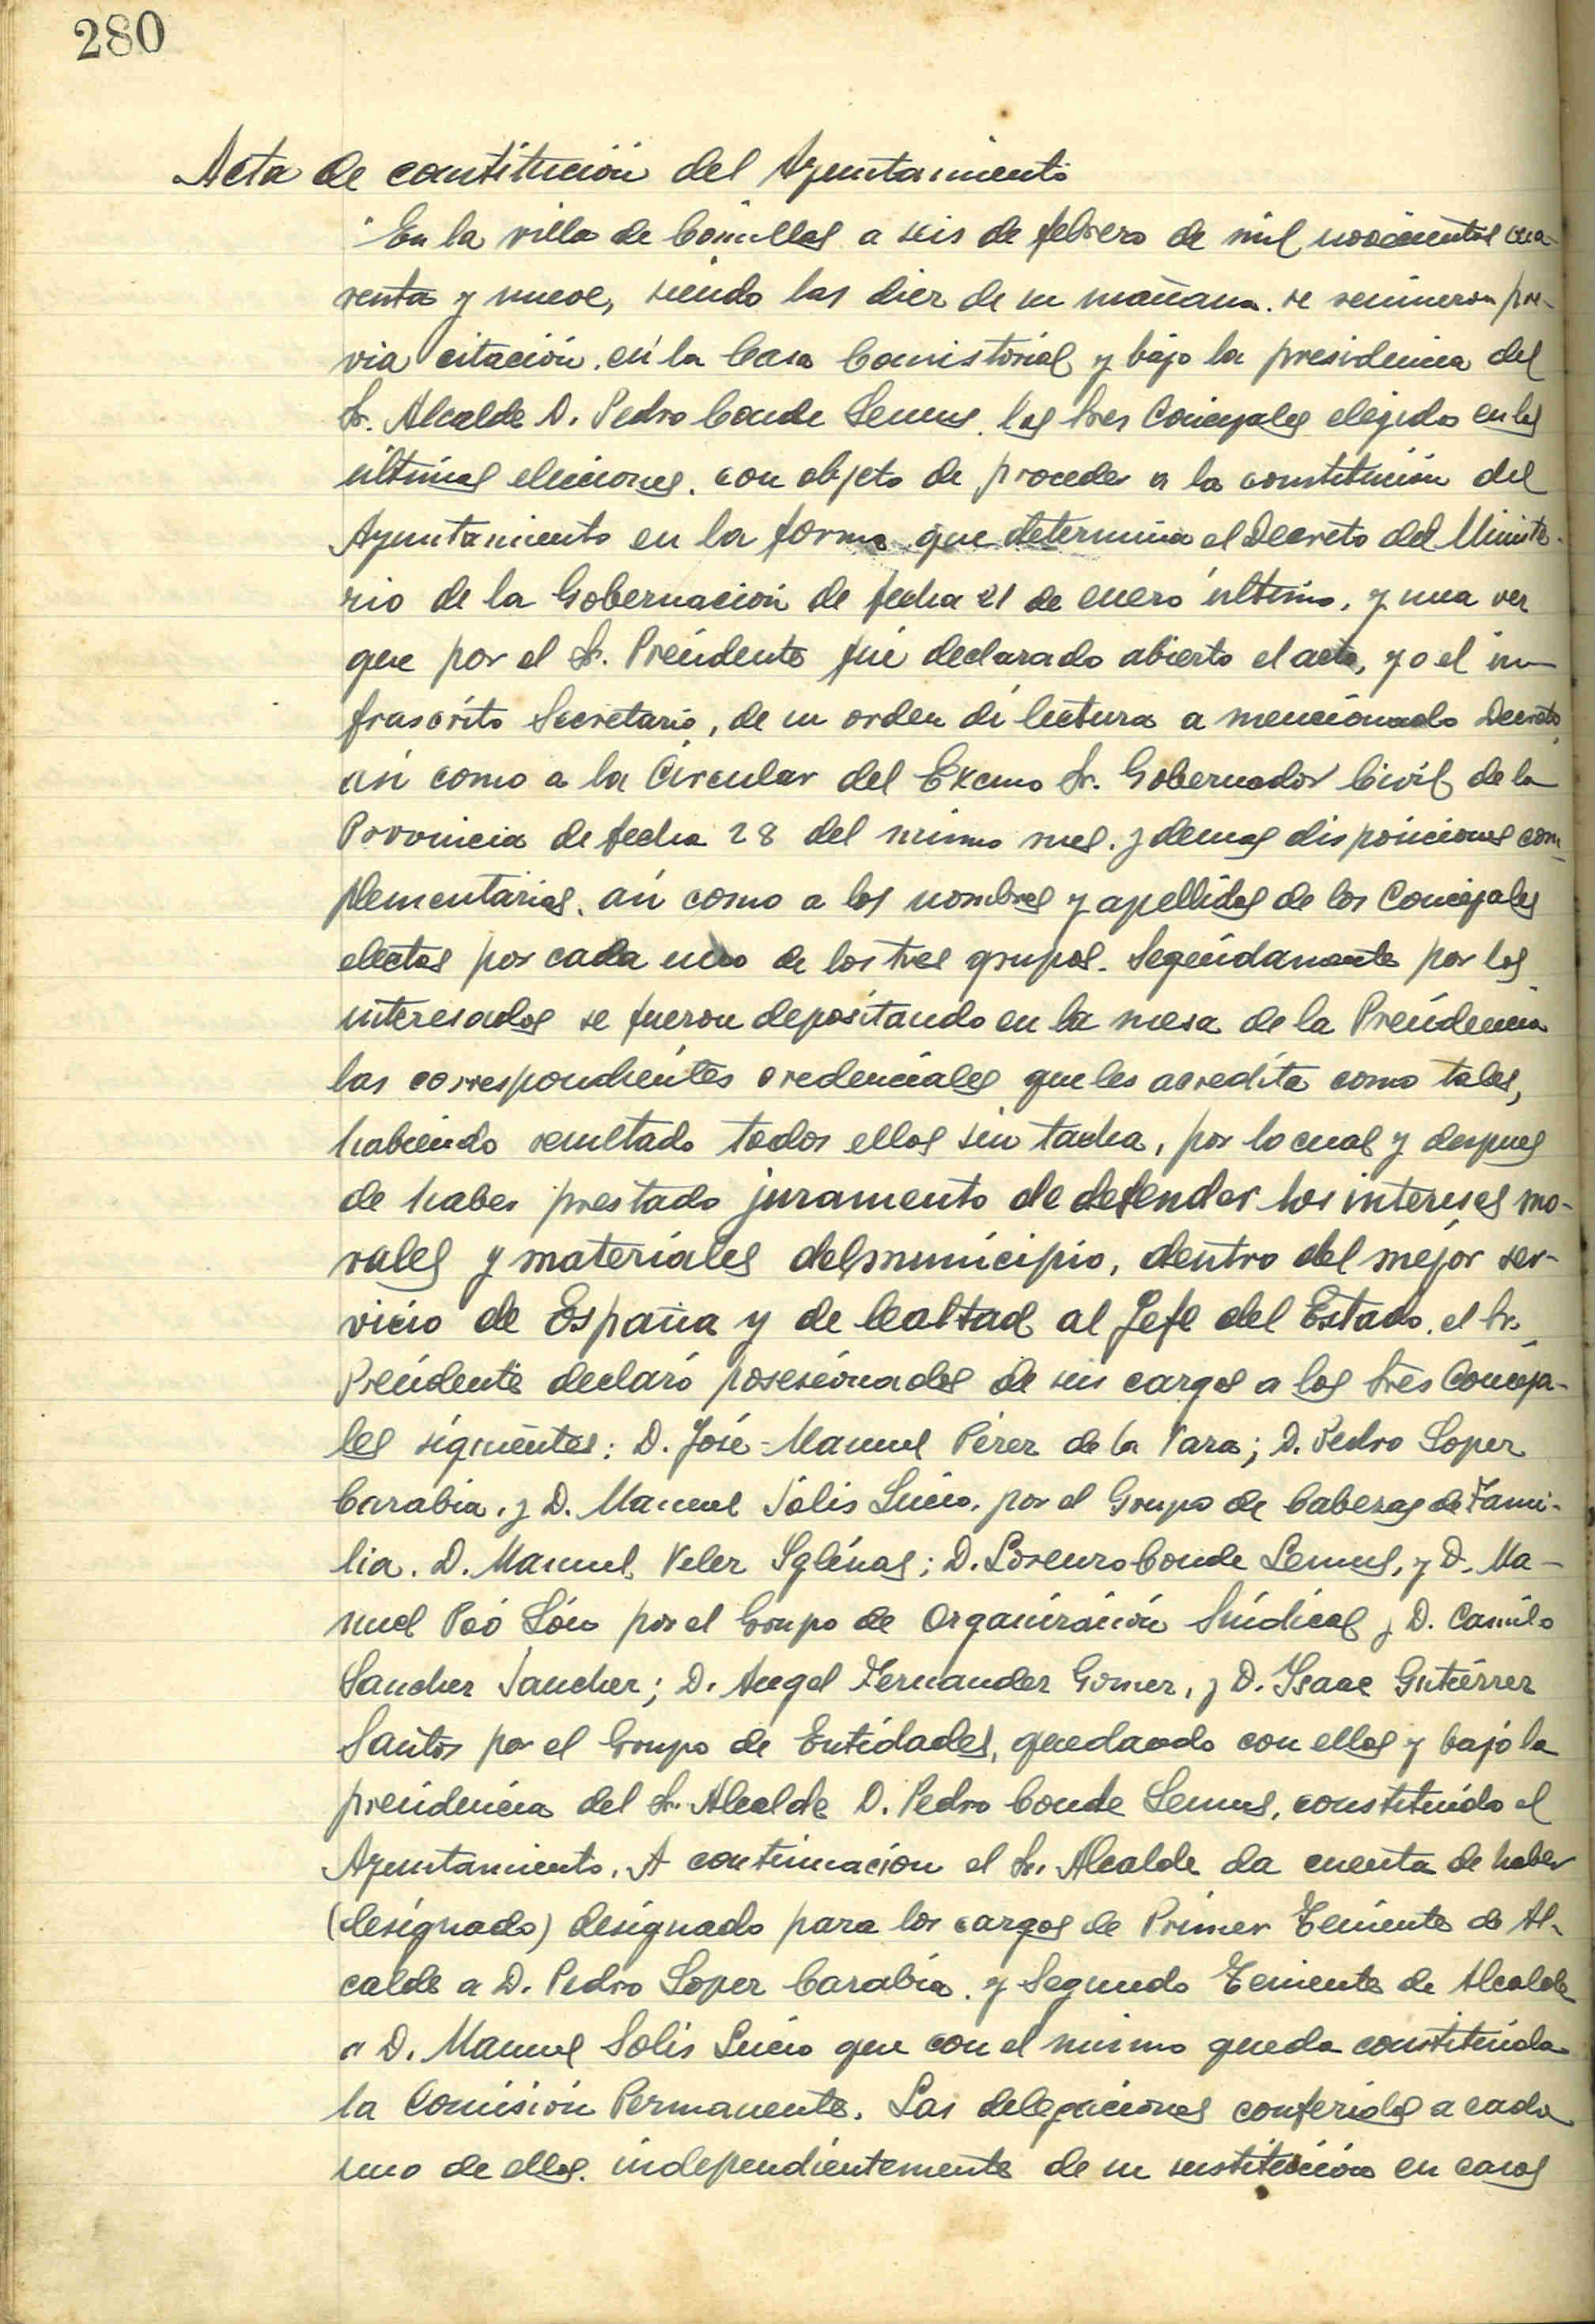 280
Acta de constitución del Ayuntamiento
En la villa de Comillas a seis de febrero de mil novecientos cua-
renta y nueve, siendo las diez de su mañana. se reunieron pre-
via citación. en la Casa Consistorial y bajo la presidencia del
Sr. Alcalde D. Pedro Conde Lemus. los Sres Concejales elegidos en las
últimas elecciones. con objeto de proceder a la constitución del
Ayuntamiento en la forma que determina el Decreto del Ministe-
rio de la Gobernación de fecha 21 de enero último, y una vez
que por el Sr. Presidente fué declarado abierto el acto, yo el in-
frascrito Secretario, de su orden dí lectura a mencionado Decreto,
así como a la Circular del Excmo Sr. Gobernador Civil de la
Provincia de fecha 28 del mismo mes. y demas disposiciones com-
plementarias. así como a los nombres y apellidos de los Concejales
electos por cada uno de los tres grupos. Seguidamente por los
interesados se fueron depositando en la mesa de la Presidencia
las correspondientes credenciales que les acredita como tales,
habiendo resultado todos ellos sin tacha, por lo cual y despues
de haber prestado juramento de defender los intereses mo-
rales y materiales del municipio, dentro del mejor ser-
vicio de España y de lealtad al Jefe del Estado. el Sr.
Presidente declaró posesionados de sus cargos a los Sres Conceja-
les siguientes: D. José-Manuel Pérez de la Vara; D. Pedro Lopez
Carabia, y D. Manuel Solis Lucio. por el Grupo de Cabezas de Fami-
lia. D. Manuel Velez Yglesias; D. Lorenzo Conde Lemus, y D. Ma-
nuel Poó por el Grupo de Organización Sindical y D. Camilo
Sanchez Sanchez; D. Angel Fernandez Gomez, y D. Isaac Gutiérrez
Santos por el Grupo de Entidades, quedando con ellos y bajo la
presidencia del Sr. Alcalde D. Pedro Conde Lemus, constituido el
Ayuntamiento. A continuación el Sr. Alcalde da cuenta de haber
(designado) designado para los cargos de Primer Teniente de Al-
calde a D. Pedro Lopez Carabia. y Segundo Teniente de Alcalde
a D. Manuel Solis Lucio que con el mismo queda constituida
la Comisión Permanente. Las delegaciones conferidas a cada
uno de ellos. independientemente de su sustitución en casos